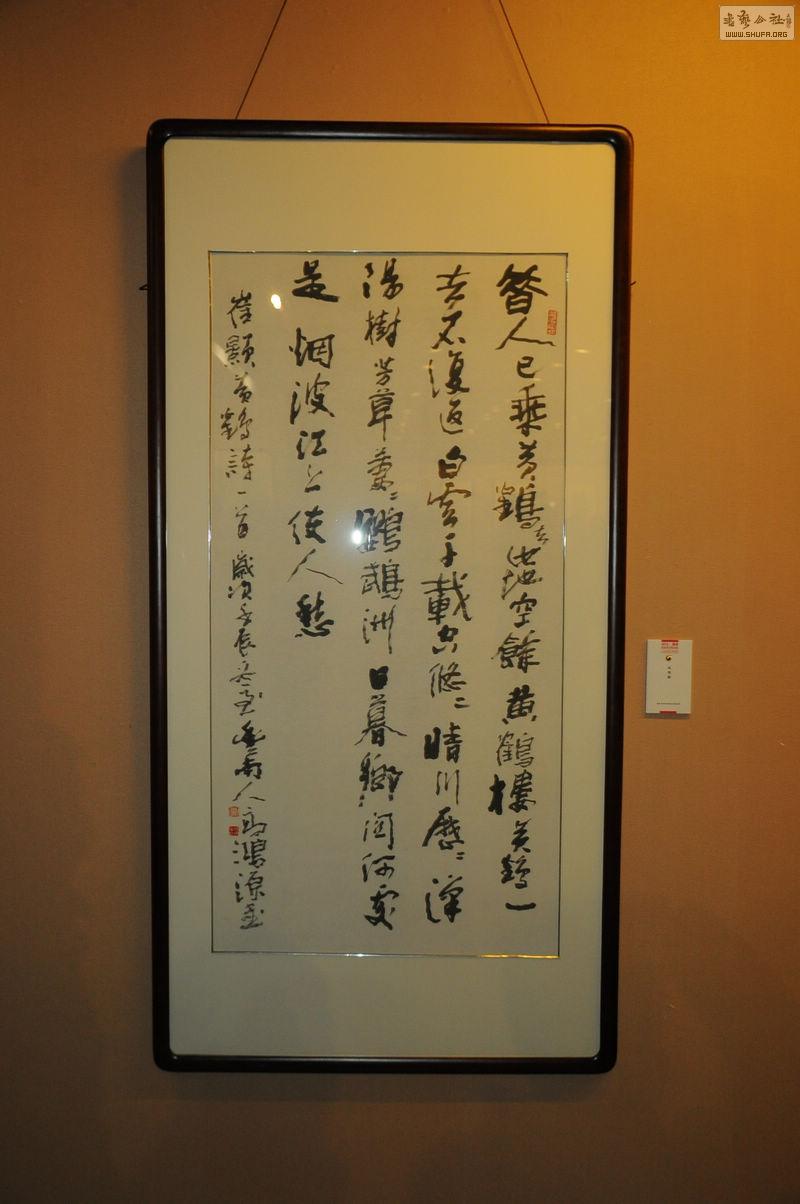 昔人已乘黃鶴去此地空餘黃鶴樓黃鶴一
去不復返白雲千載空悠〻晴川歷〻漢
陽樹芳草萋〻鸚鵡洲日暮鄉関何處
是烟波江上使人愁
崔顥黃鶴詩一首歲次壬辰冬至人高鴻源書
WWW.SHUFA.ORG